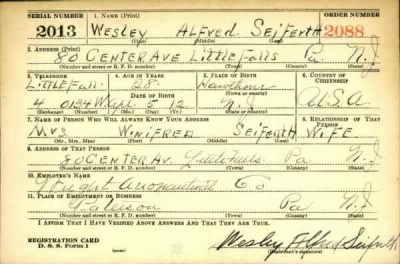 SERIAL NUMBER 1. NAME (Print) ORDER NUMBER
2013 Wesley Alfred Seiferth 2088
(First) (Middle) (Last)
2. ADDRESS (Print)
80 CENTER AVE LITTLE FALLS Pa. N.J.
(Number and street or R. F. D. number) (Town) (County) (State)
3. TELEPHONE 4. AGE IN YEARS 5. PLACE OF BIRTH 6. COUNTRY OF CITIZENSHIP
Little Falls 28 Hawthorne
DATE OF BIRTH
4 0134W Apr. 5 12 N.J. U.S.A.
(Exchange) (Number) (Mo.) (Day) (Yr.) (State or country)
7. NAME OF PERSON WHO WILL ALWAYS KNOW YOUR ADDRESS 8. RELATIONSHIP OF THAT PERSON
Mrs Winifred Seiferth Wife
(Mr., Mrs., Miss) (First) (Middle) (Last)
9. ADDRESS OF THAT PERSON
80 Center Av. Little Falls Pa N.J.
(Number and street or R. F. D. number) (Town) (County) (State)
10. EMPLOYER'S NAME
Wright Aeronautical Co
11. PLACE OF EMPLOYMENT OR BUSINESS
Paterson Pa N.J.
(Number and street or R. F. D. number) (Town) (County) (State)
I AFFIRM THAT I HAVE VERIFIED ABOVE ANSWERS AND THAT THEY ARE TRUE.
REGISTRATION CARD
D. S. S. Form 1 (over) Wesley Alfred Seiferth
(Registrant's signature)